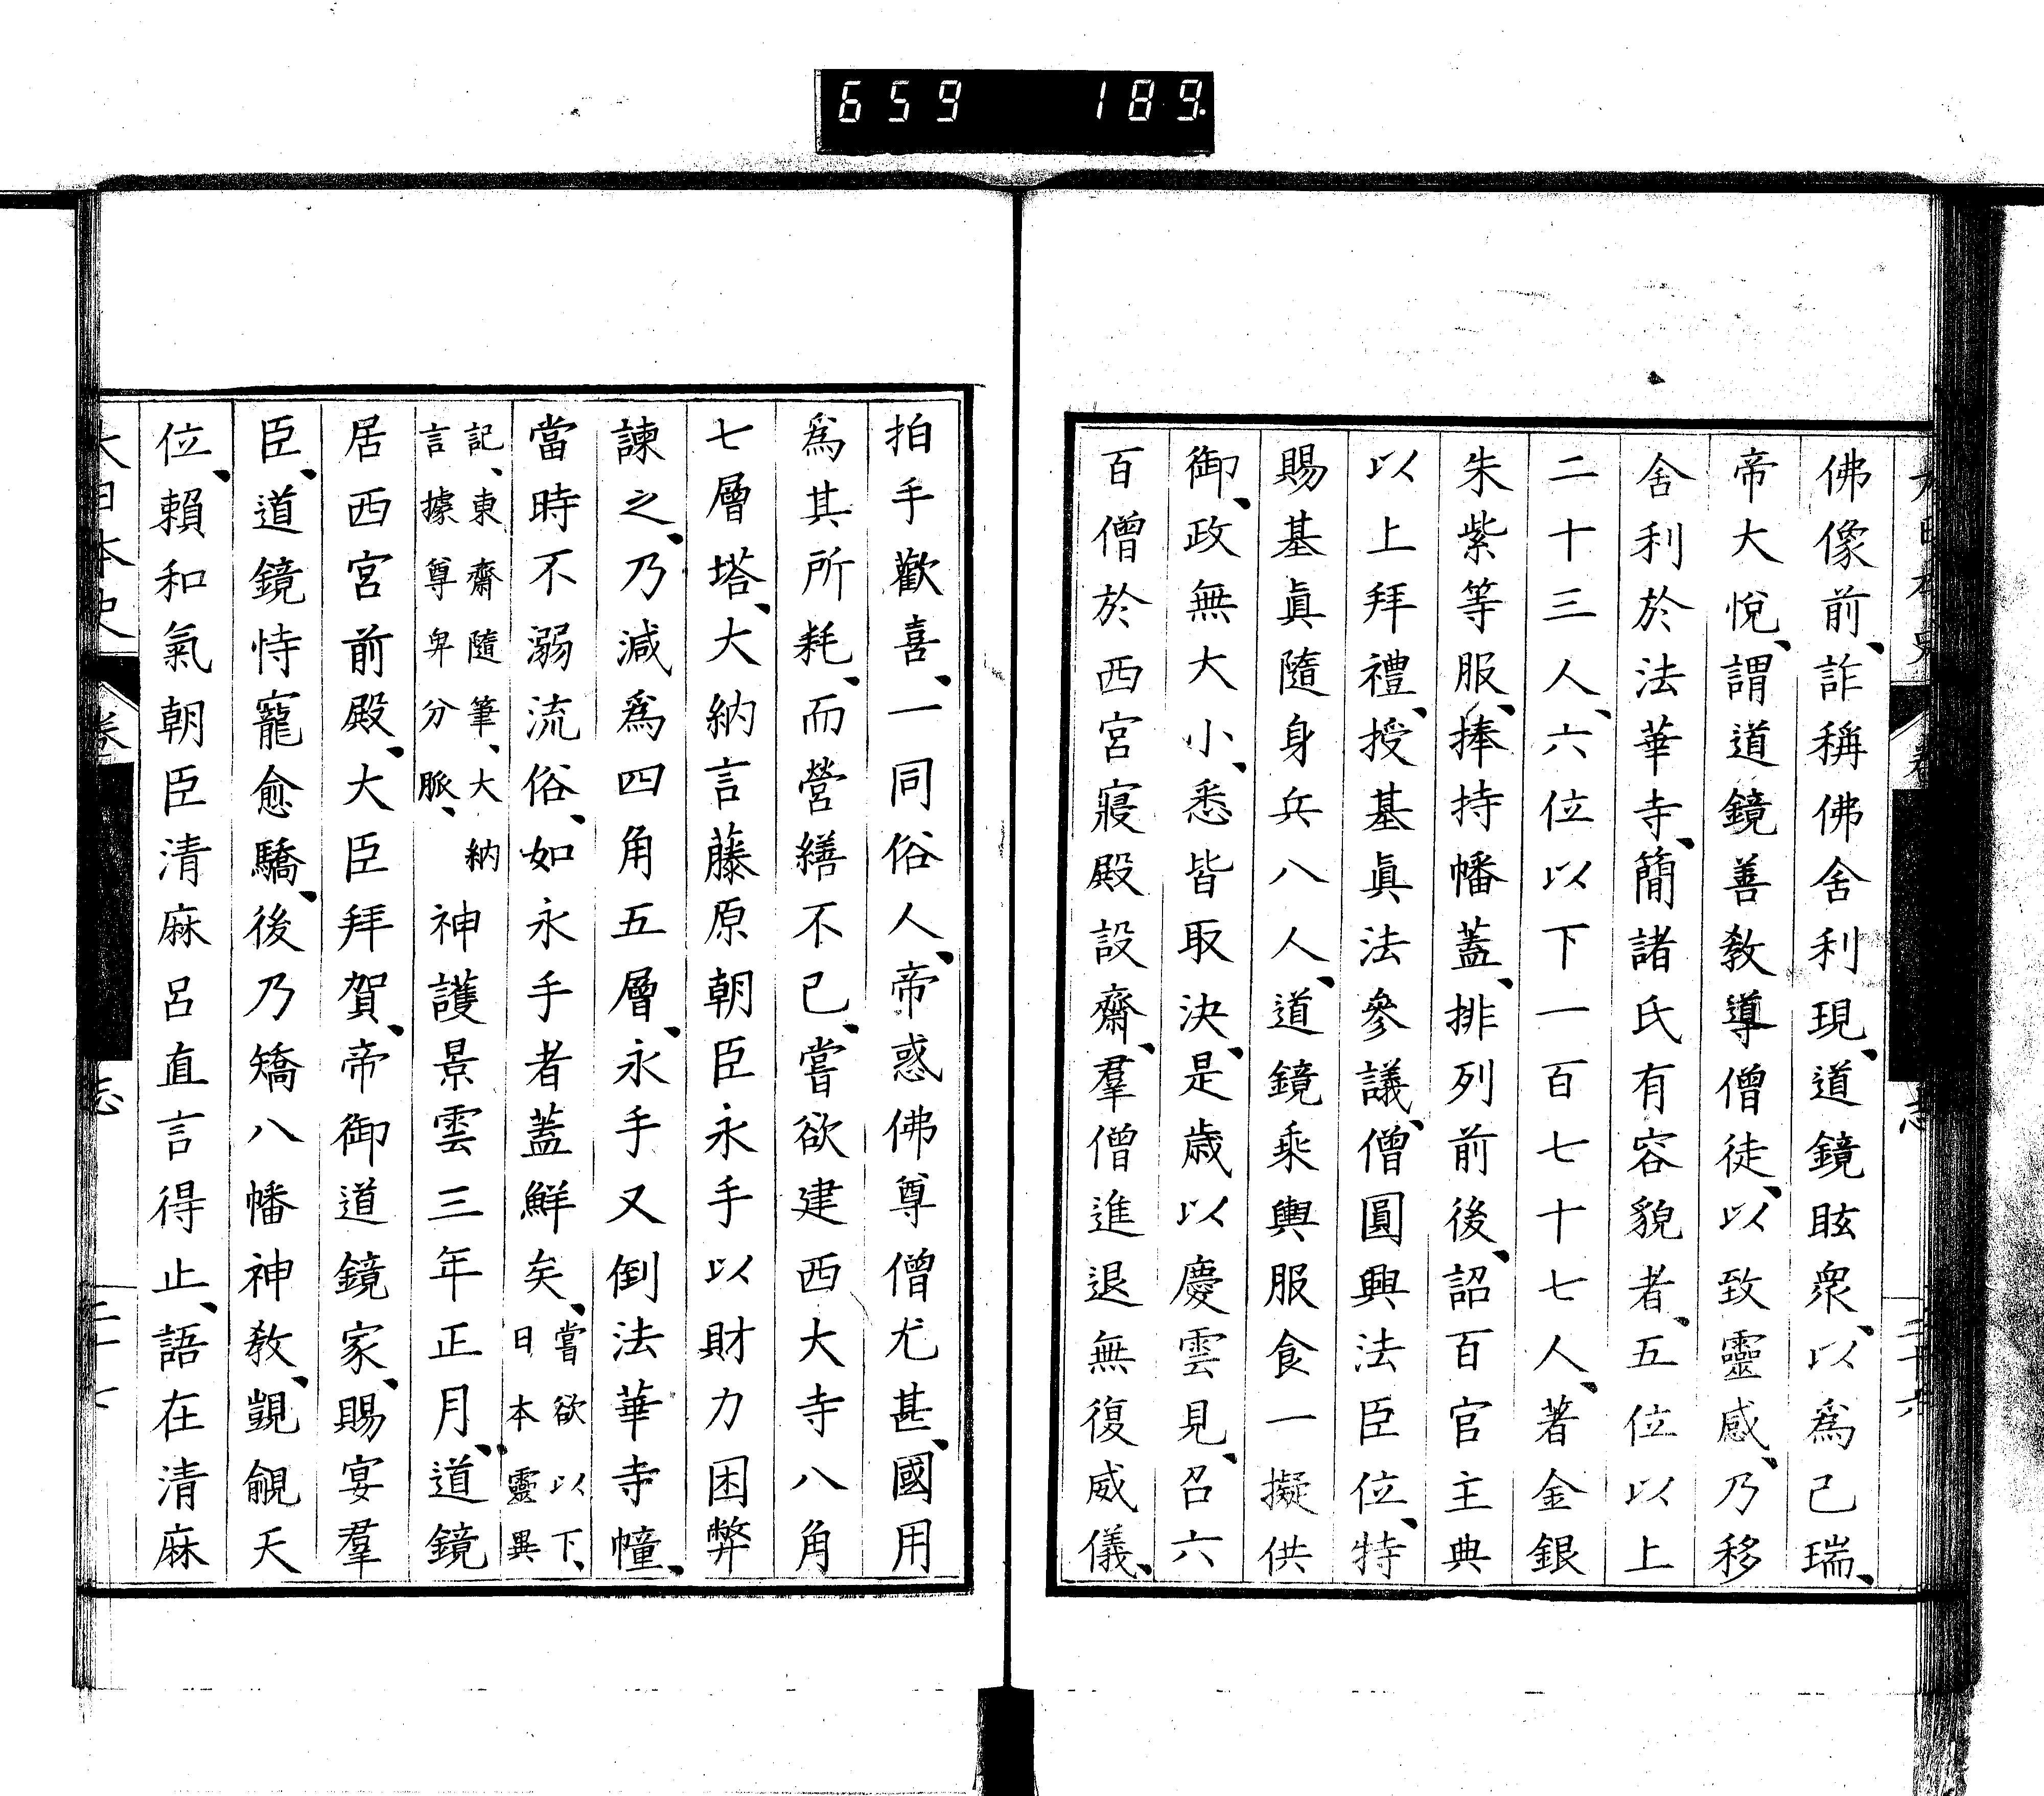 659 189
佛像前、詐稱佛舍利現、道鏡眩衆、以爲己瑞、
帝大悅、謂道鏡善敎導僧徒、以致靈感、乃移
舍利於法華寺、簡諸氏有容貌者、五位以上
二十三人、六位以下一百七十七人、著金銀
朱紫等服、捧持幡蓋、排列前後、詔百官主典
以上拜禮、授基眞法參議、僧圓興法臣位、特
賜基眞隨身兵八人、道鏡乘輿服食一擬供
御、政無大小、悉皆取決、是歲以慶雲見、召六
百僧於西宮寢殿設齋、羣僧進退無復威儀、
拍手歡喜、一同俗人、帝惑佛尊僧尤甚、國用
爲其所耗、而營繕不已、嘗欲建西大寺八角
七層塔、大納言藤原朝臣永手以財力困弊
諫之、乃減爲四角五層、永手又倒法華寺幢、
當時不溺流俗、如永手者蓋鮮矣、嘗欲以下、日本靈異
記、東齋隨筆、大納言據尊卑分脈、神護景雲三年正月、道鏡
居西宮前殿、大臣拜賀、帝御道鏡家、賜宴羣
臣、道鏡恃寵愈驕、後乃矯八幡神敎、覬覦天
位、賴和氣朝臣清麻呂直言得止、語在清麻
大日本史 卷 志 二十七